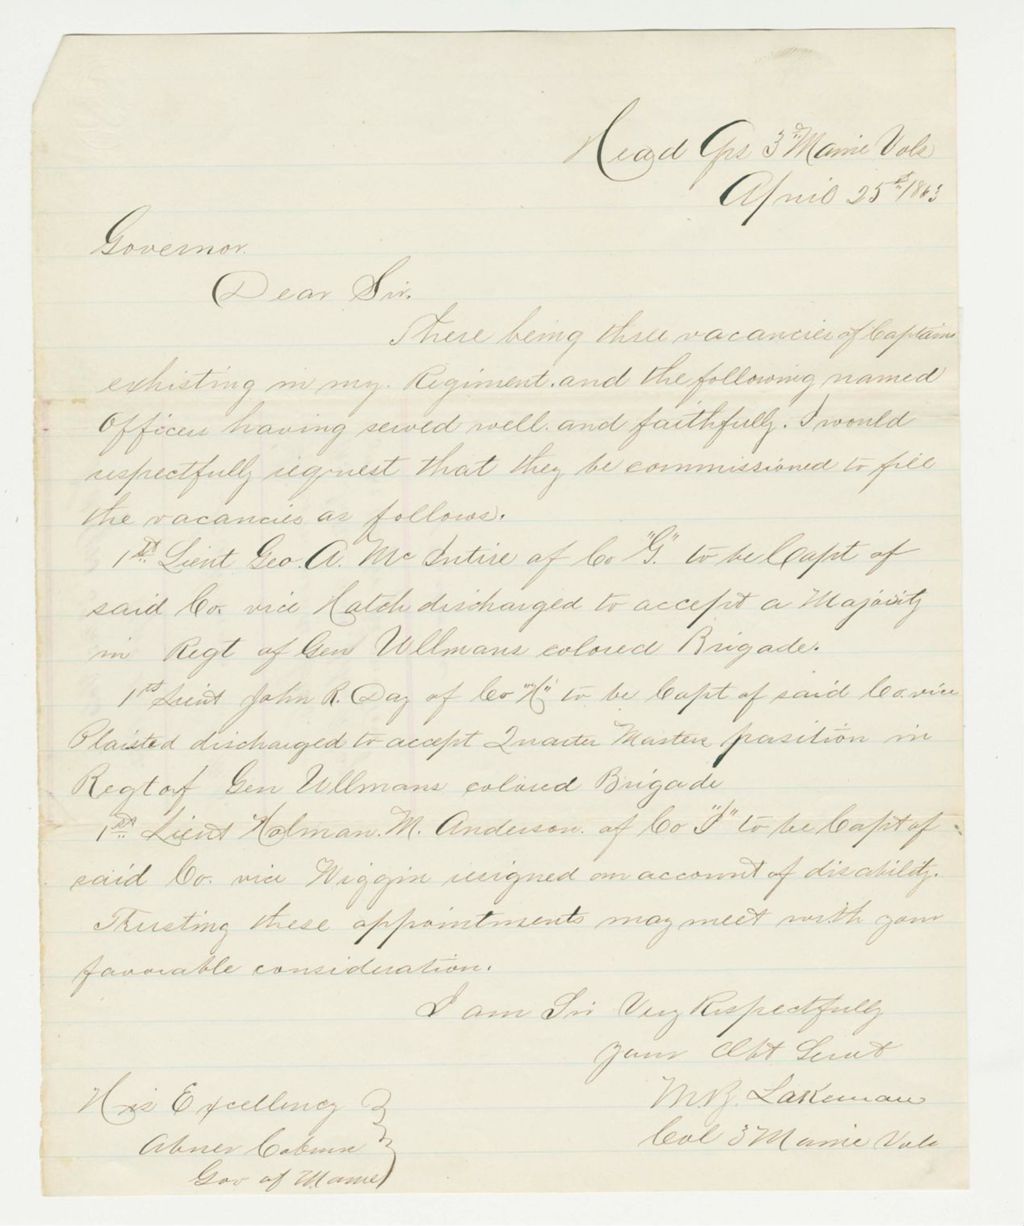 Head Qrs 3d Maine Vols
April 25th 1863
Governor.
Dear Sir.
There being three vacancies of Captains
exhisting in my Regiment. and the following named
Officers having served well. and faithfully. I would
respectfully request that they be commissioned to fill
the vacancies as follows.
1st Lieut Geo. A. McIntire of Co "G" to be Capt of
said Co. vice Hatch discharged to accept a Majority
in Regt of Gen Ullmans colored Brigade.
1st Lieut John R. Day of Co "H" to be Capt of said Co. vice
Plaisted discharged to accept Quarter Masters position in
Regt of Gen Ullmans colored Brigade
1st Lieut Holman. M. Anderson. of Co "I" to be Capt of
said Co. vice Wiggin resigned on account of disability.
Trusting these appointments may meet with your
favorable consideration.
I am Sir Very Respectfully
your Obt Servt
M.B. Lakeman
Col 3 Maine Vols
His Excellency
Abner Coburn
Gov of Maine